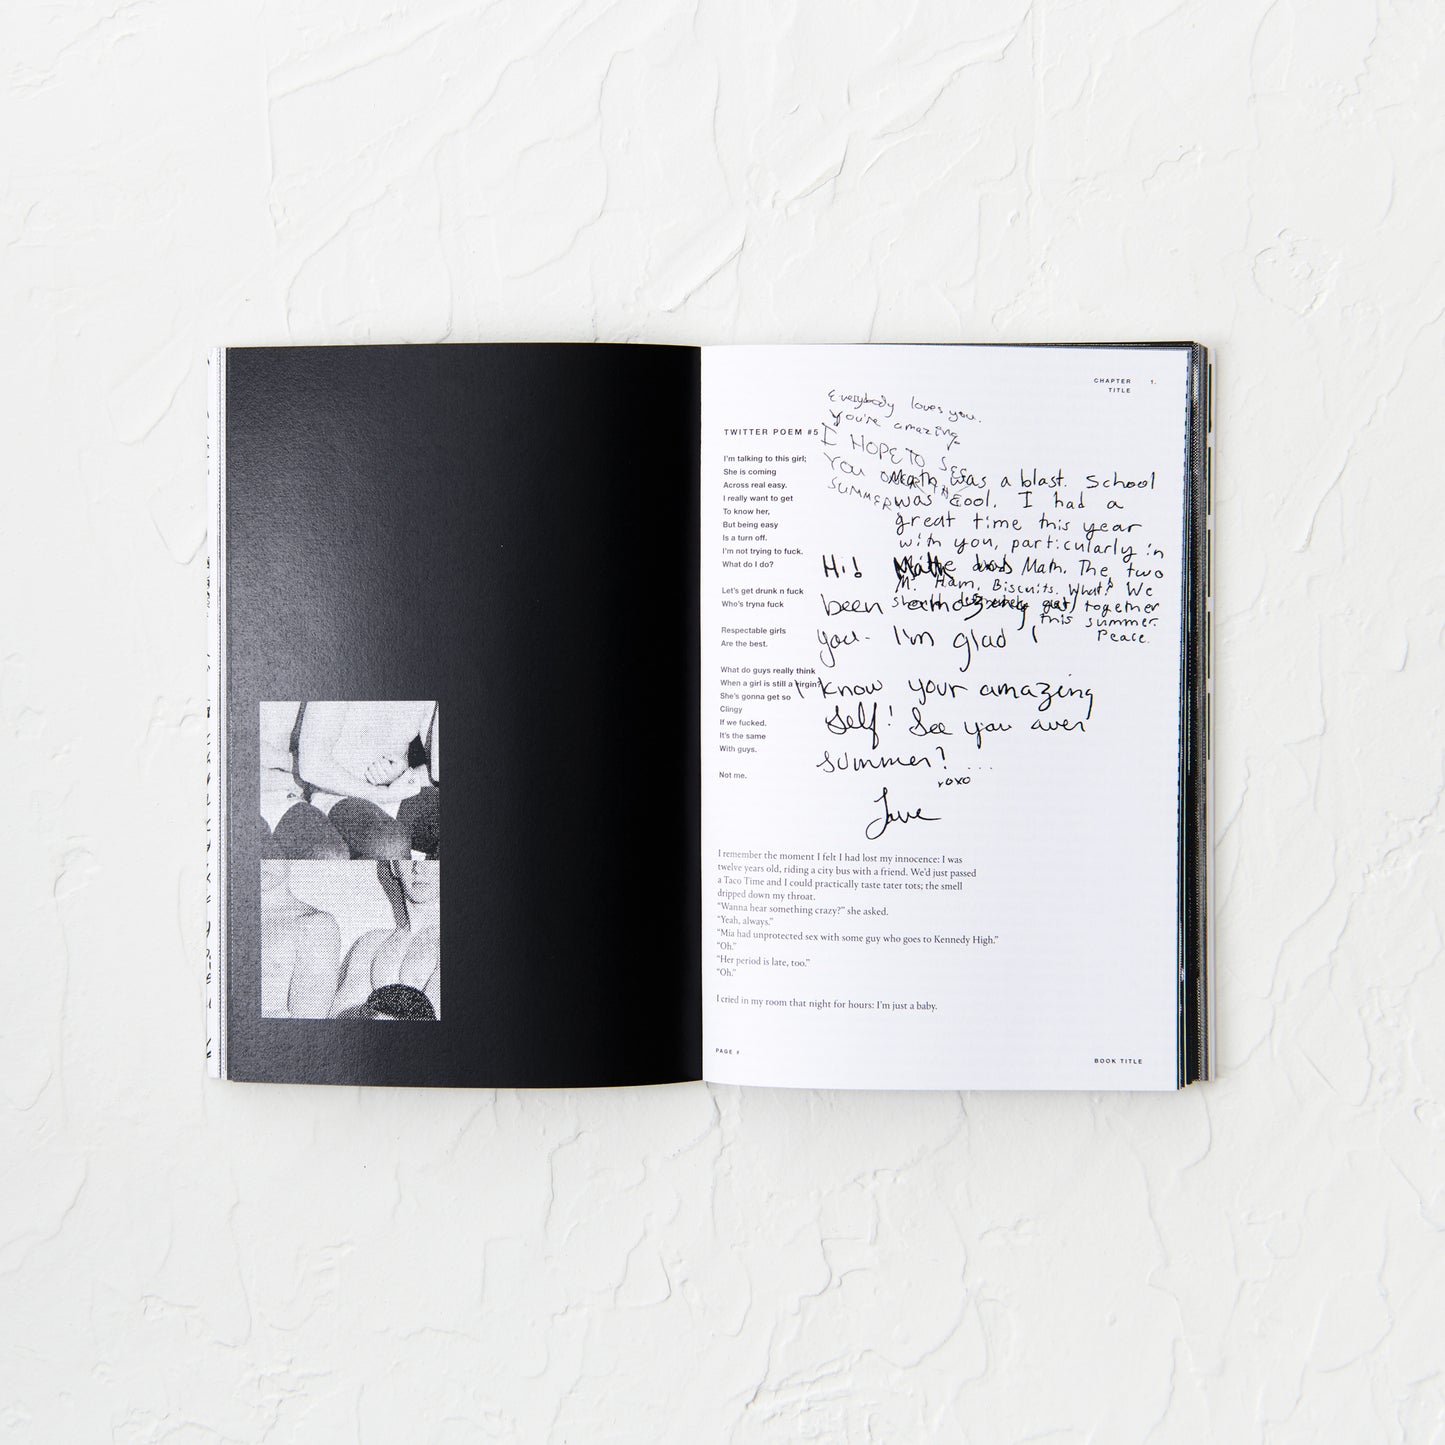 CHAPTER 1.
TITLE
TWITTER POEM #5
I'm talking to this girl;
She is coming
Across real easy.
I really want to get
To know her,
But being easy
Is a turn off.
I'm not trying to fuck.
What do I do?
Let's get drunk n fuck
Who's tryna fuck
Respectable girls
Are the best.
What do guys really think
When a girl is still a virgin?
She's gonna get so
Clingy
If we fucked.
It's the same
With guys.
Not me.
Everybody loves you.
You're amazing
I HOPE TO SEE
YOU OVER THE
SUMMER
Math was a blast. School
was cool. I had a
great time this year
with you, particularly in
Math. The two
M. Ham, Biscuits. What? We
should get together
this summer.
Peace.
Hi!
been amazing
you - I'm glad
I know your amazing
self! See you over
summer? ...
xoxo
I remember the moment I felt I had lost my innocence: I was
twelve years old, riding a city bus with a friend. We'd just passed
a Taco Time and I could practically taste tater tots; the smell
dripped down my throat.
"Wanna hear something crazy?" she asked.
"Yeah, always."
"Mia had unprotected sex with some guy who goes to Kennedy High."
"Oh."
"Her period is late, too."
"Oh."
I cried in my room that night for hours: I'm just a baby.
PAGE #
BOOK TITLE